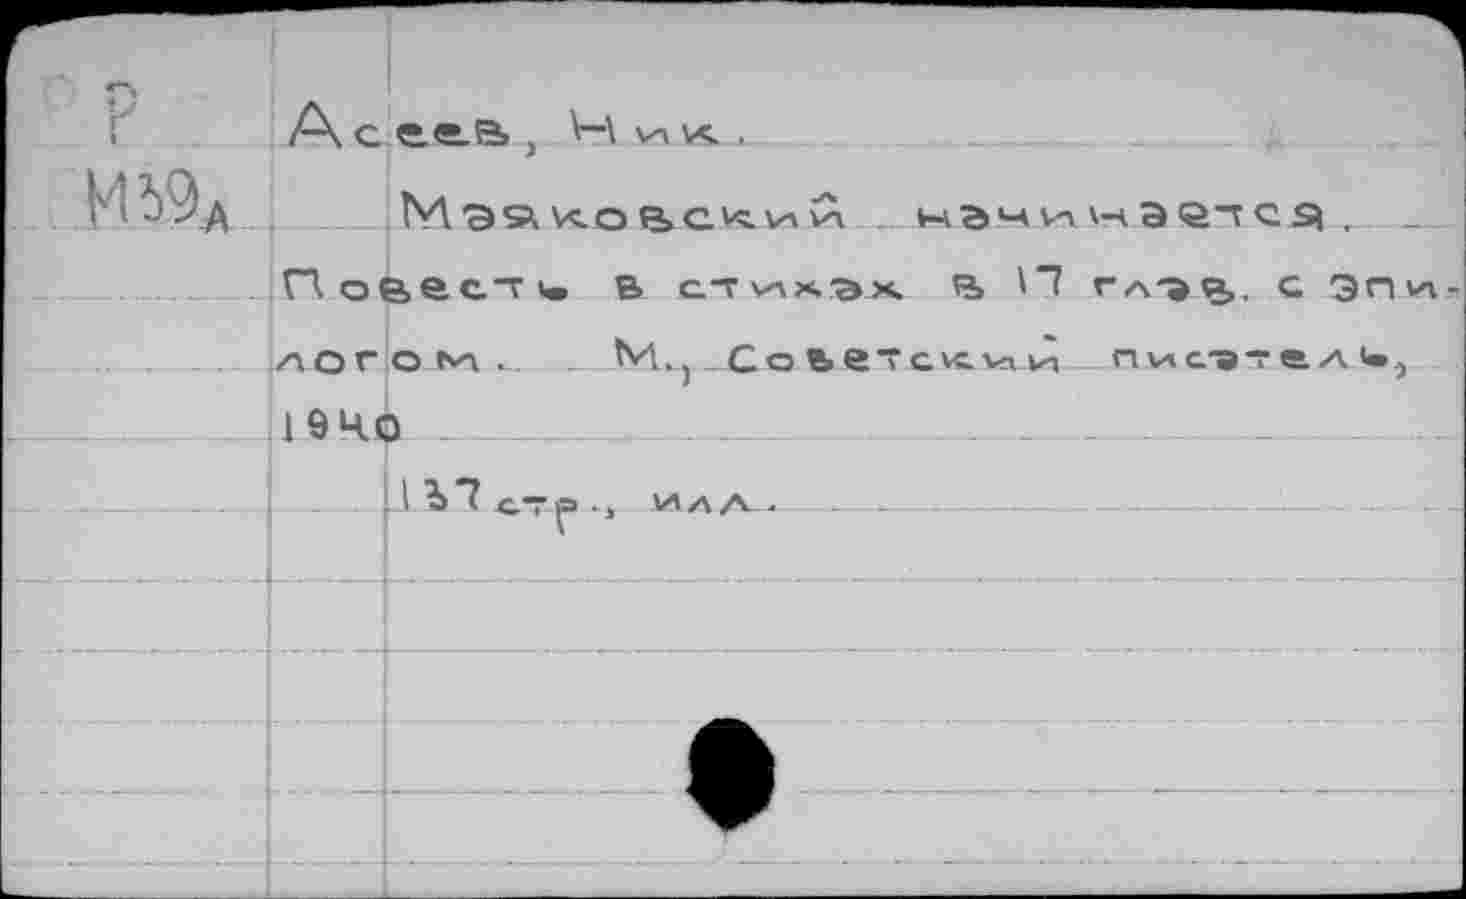 Р
М39д
Асеев, Ник.
Маяковский начинается.
Повесть в стихах в 17 глав. с эпи-
логом. М., Советский писатель,
1940
137 стр., илл.